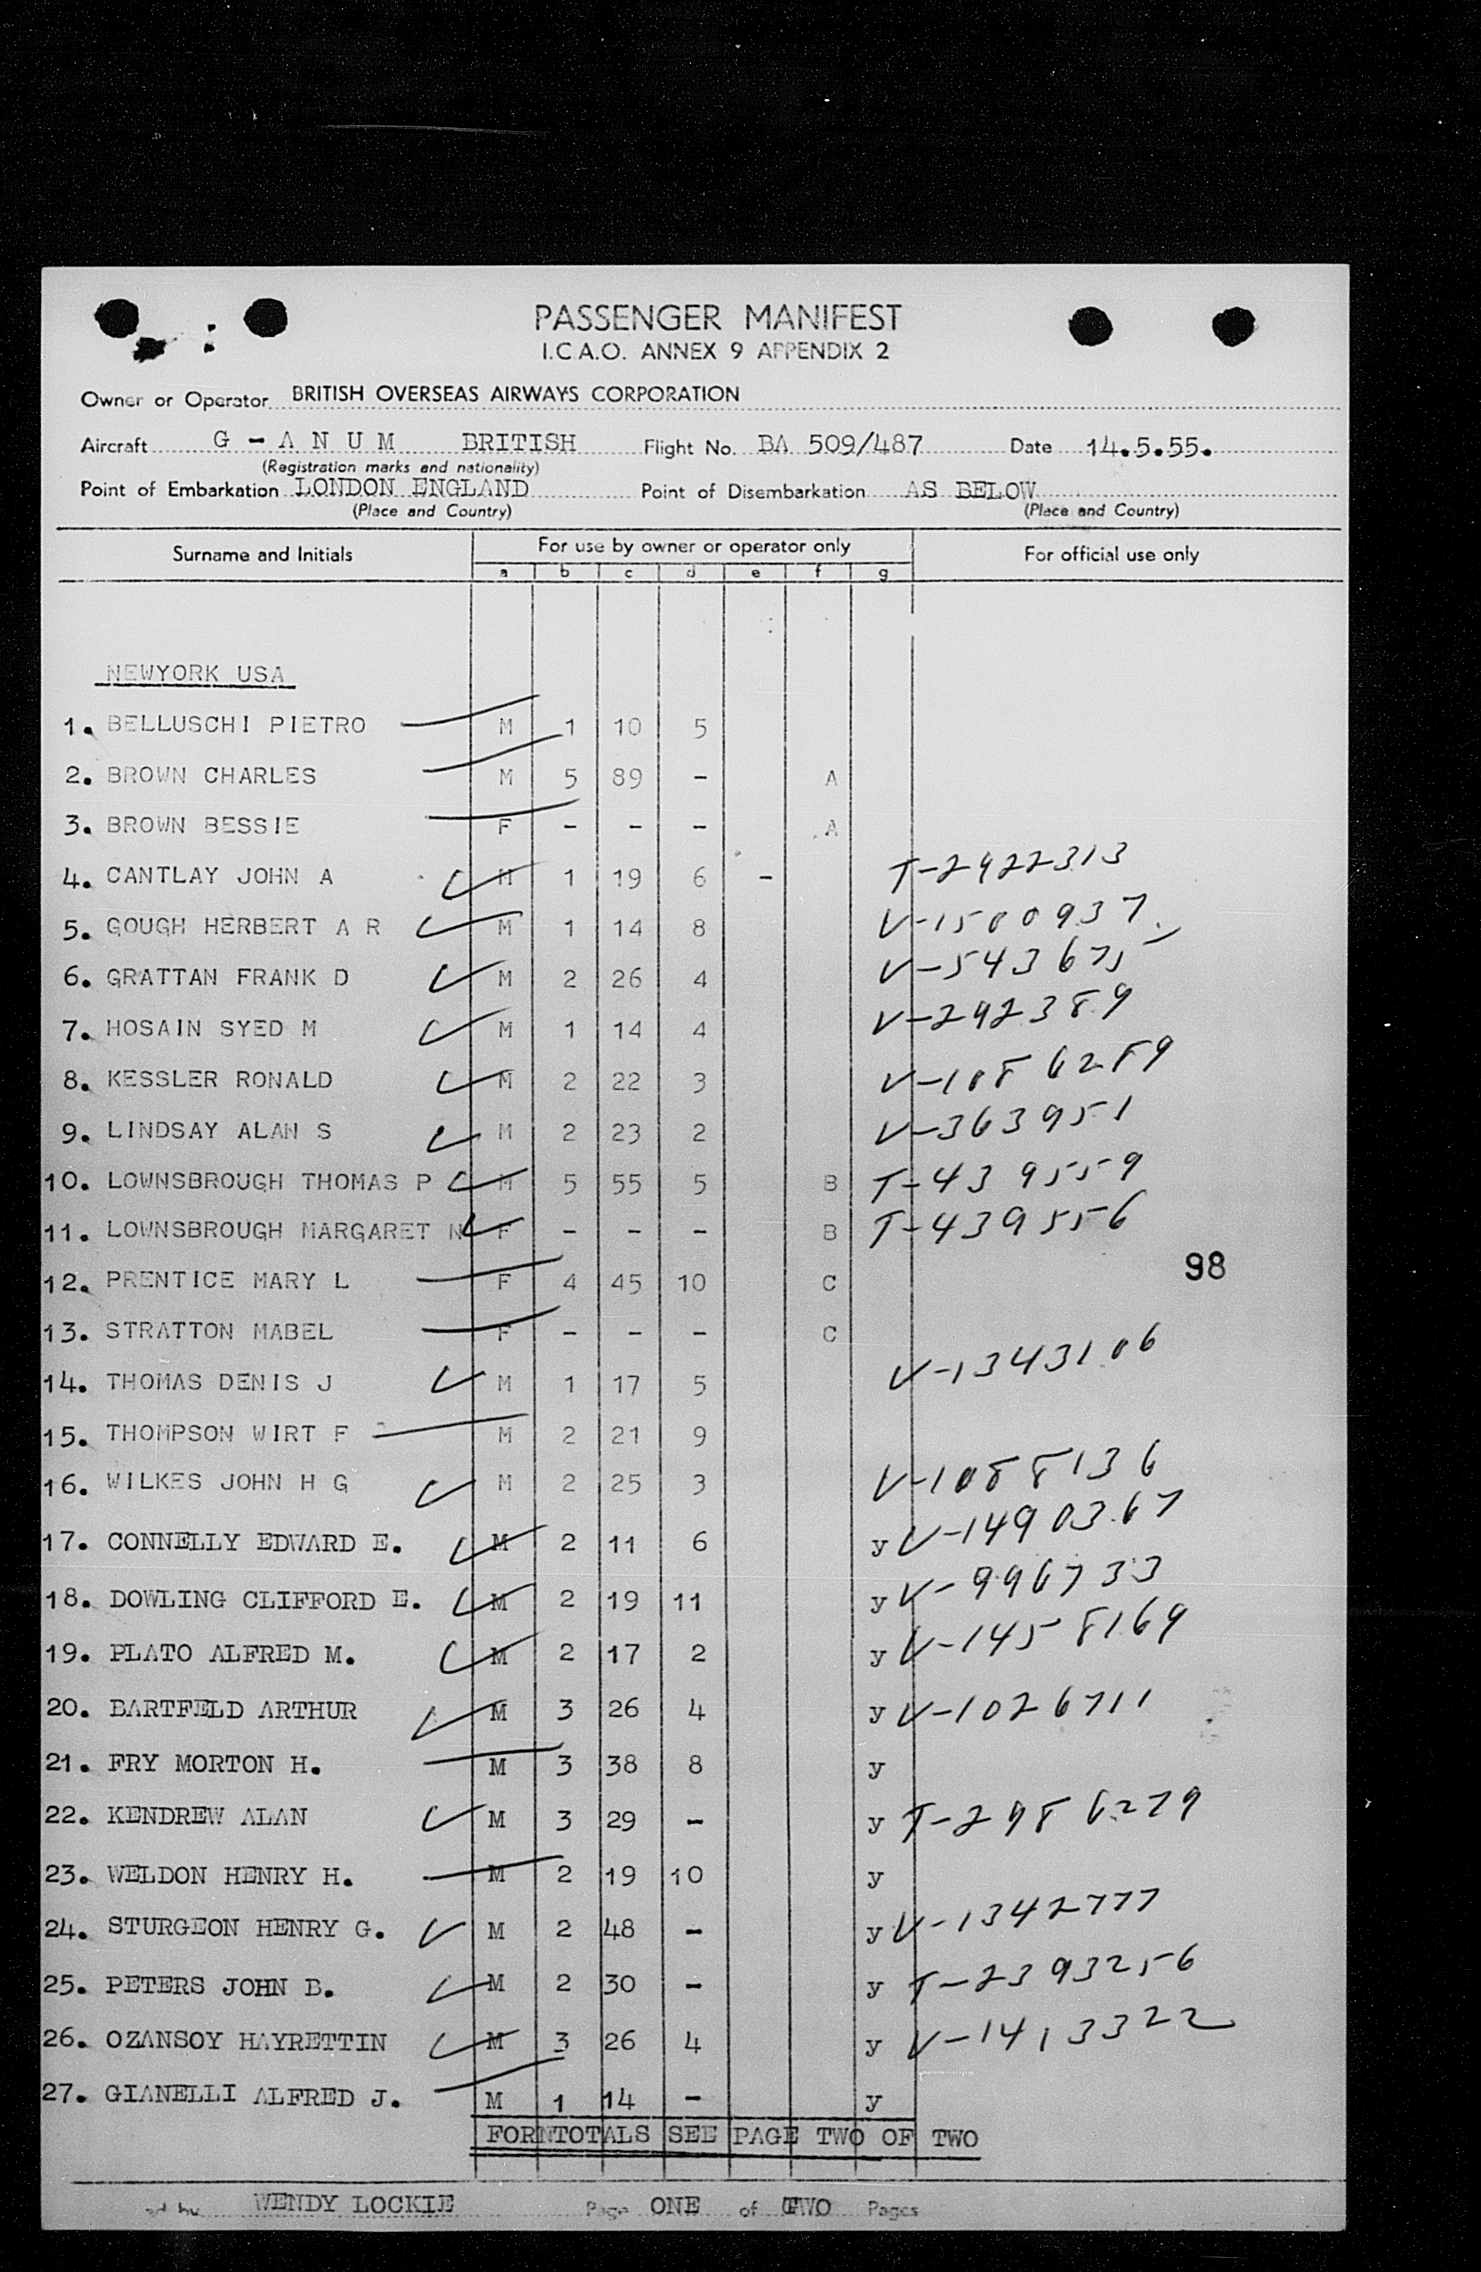 PASSENGER MANIFEST
I.C.A.O. ANNEX 9 APPENDIX 2
Owner or Operator BRITISH OVERSEAS AIRWAYS CORPORATION
Aircraft G - A N U M BRITISH Flight No. BA 509/487 Date 14.5.55.
(Registration marks and nationality)
Point of Embarkation LONDON ENGLAND Point of Disembarkation AS BELOW
(Place and Country) (Place and Country)
Surname and Initials For use by owner or operator only For official use only
a b c d e f g
NEWYORK USA
1. BELLUSCHI PIETRO M 1 10 5
2. BROWN CHARLES M 5 89 - A
3. BROWN BESSIE F - - - A
4. CANTLAY JOHN A M 1 19 6 - T-2922313
5. GOUGH HERBERT A R M 1 14 8 V-1500937
6. GRATTAN FRANK D M 2 26 4 V-543675
7. HOSAIN SYED M M 1 14 4 V-292389
8. KESSLER RONALD M 2 22 3 V-1086289
9. LINDSAY ALAN S M 2 23 2 V-363951
10. LOWNSBROUGH THOMAS P M 5 55 5 B T-439559
11. LOWNSBROUGH MARGARET N F - - - B T-439556
98
12. PRENTICE MARY L F 4 45 10 C
13. STRATTON MABEL F - - - C
14. THOMAS DENIS J M 1 17 5 V-1343106
15. THOMPSON WIRT F M 2 21 9
16. WILKES JOHN H G M 2 25 3 V-1088136
17. CONNELLY EDWARD E. M 2 11 6 y V-1490367
18. DOWLING CLIFFORD E. M 2 19 11 y V-996733
19. PLATO ALFRED M. M 2 17 2 y V-1458169
20. BARTFELD ARTHUR M 3 26 4 y V-1026711
21. FRY MORTON H. M 3 38 8 y
22. KENDREW ALAN M 3 29 - y T-2986279
23. WELDON HENRY H. M 2 19 10 y
24. STURGEON HENRY G. M 2 48 - y V-1342777
25. PETERS JOHN B. M 2 30 - y T-2393256
26. OZANSOY HAYRETTIN M 3 26 4 y V-1413322
27. GIANELLI ALFRED J. M 1 14 - y
FOR TOTALS SEE PAGE TWO OF TWO
by WENDY LOCKIE Page ONE of TWO Pages